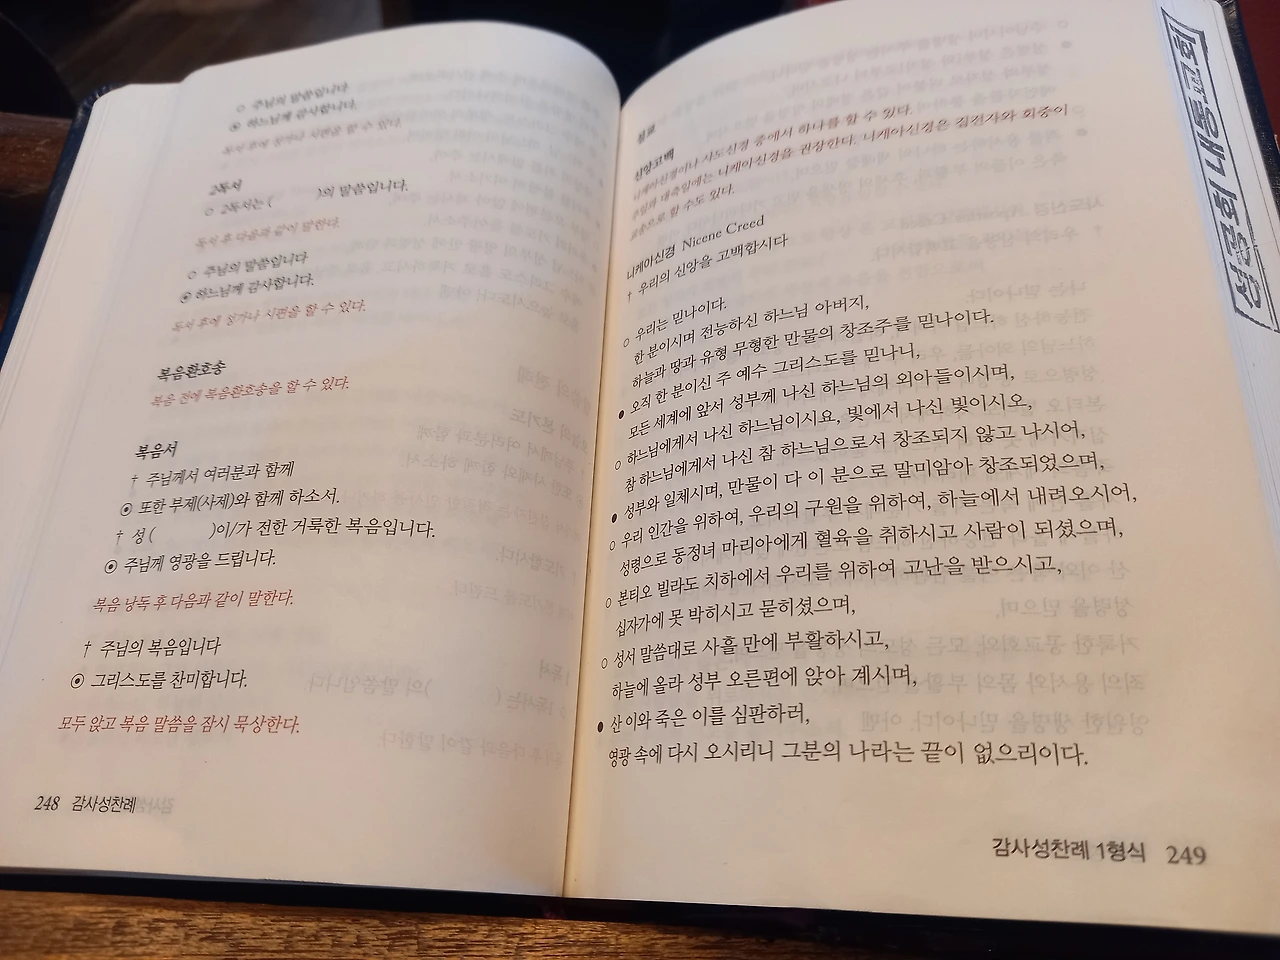 ○ 주님의 말씀입니다.
⦿ 하느님께 감사합니다.
독서 후에 성가나 시편을 할 수 있다.
2독서
○ 2독서는 ( )의 말씀입니다.
독서 후 다음과 같이 말한다.
○ 주님의 말씀입니다
⦿ 하느님께 감사합니다.
독서 후에 성가나 시편을 할 수 있다.
복음환호송
복음 전에 복음환호송을 할 수 있다.
복음서
† 주님께서 여러분과 함께
⦿ 또한 부제(사제)와 함께 하소서.
† 성 ( )이/가 전한 거룩한 복음입니다.
⦿ 주님께 영광을 드립니다.
복음 낭독 후 다음과 같이 말한다.
† 주님의 복음입니다
⦿ 그리스도를 찬미합니다.
모두 앉고 복음 말씀을 잠시 묵상한다.
248 감사성찬례
설교
신앙고백
니케아신경이나 사도신경 중에서 하나를 할 수 있다.
주일과 대축일에는 니케아신경을 권장한다. 니케아신경은 집전자와 회중이
교송으로 할 수도 있다.
니케아신경 Nicene Creed
† 우리의 신앙을 고백합시다
○ 우리는 믿나이다.
한 분이시며 전능하신 하느님 아버지,
하늘과 땅과 유형 무형한 만물의 창조주를 믿나이다.
● 오직 한 분이신 주 예수 그리스도를 믿나니,
모든 세계에 앞서 성부께 나신 하느님의 외아들이시며,
○ 하느님에게서 나신 하느님이시요, 빛에서 나신 빛이시오,
참 하느님에게서 나신 참 하느님으로서 창조되지 않고 나시어,
● 성부와 일체시며, 만물이 다 이 분으로 말미암아 창조되었으며,
○ 우리 인간을 위하여, 우리의 구원을 위하여, 하늘에서 내려오시어,
성령으로 동정녀 마리아에게 혈육을 취하시고 사람이 되셨으며,
○ 본티오 빌라도 치하에서 우리를 위하여 고난을 받으시고,
십자가에 못 박히시고 묻히셨으며,
○ 성서 말씀대로 사흘 만에 부활하시고,
하늘에 올라 성부 오른편에 앉아 계시며,
● 산 이와 죽은 이를 심판하러,
영광 속에 다시 오시리니 그분의 나라는 끝이 없으리이다.
감사성찬례 1형식 249
성공회 내동교회